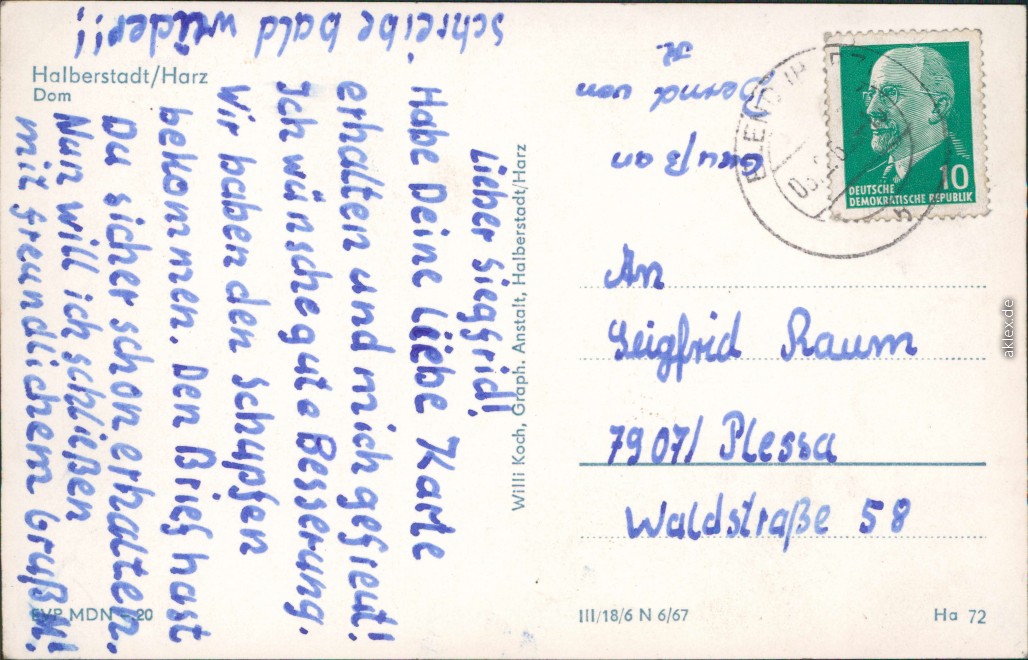 Halberstadt/Harz
Dom
Lieber Siegfrid!
Habe Deine liebe Karte
erhalten und mich gefreut!
Ich wünsche gute Besserung.
Wir haben den Schupfen
bekommen. Den Brief hast
Du sicher schon erhalten.
Nun will ich schließen
mit freundlichem Gruß
Schreibe bald wieder!!
EVP MDN -.20
Willi Koch, Graph. Anstalt, Halberstadt/Harz
Gruß an
Bernd von
DEUTSCHE
DEMOKRATISCHE REPUBLIK
10
An
Seigfrid Raum
7907/ Plessa
Waldstraße 58
III/18/6 N 6/67
Ha 72
aklex.de